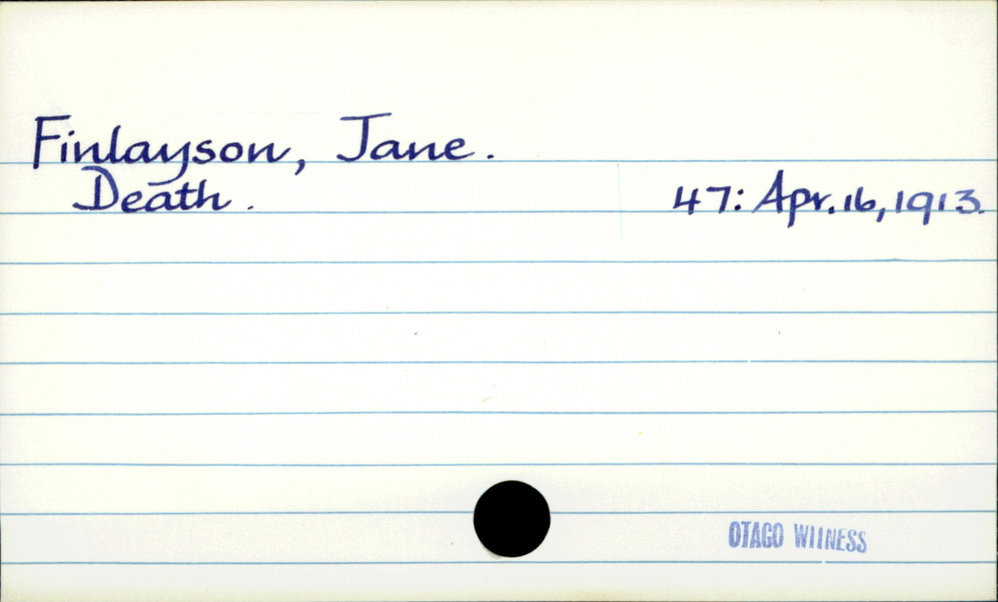 Finlayson, Jane.
Death. 47: Apr. 16, 1913.
OTAGO WITNESS